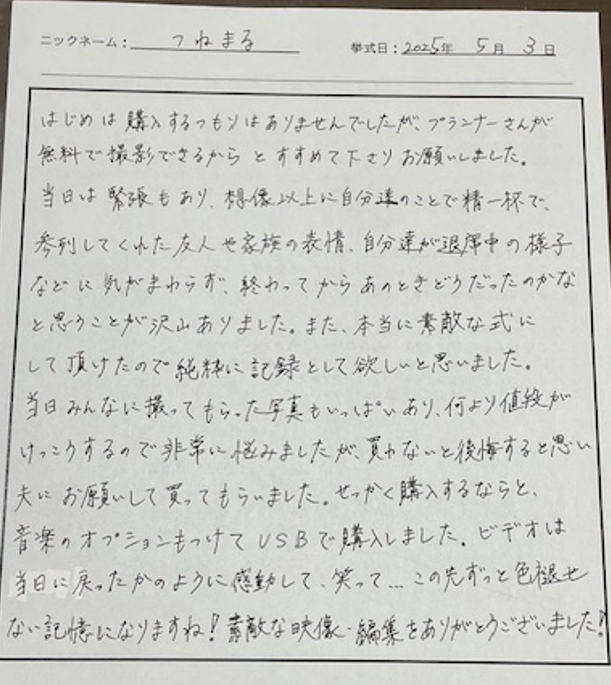 ニックネーム：つねまる 挙式日：2025年 5月 3日
はじめは購入するつもりはありませんでしたが、プランナーさんが
無料で撮影できるから とすすめて下さりお願いしました。
当日は緊張もあり、想像以上に自分達のことで精一杯で、
参列してくれた友人や家族の表情、自分達が退席中の様子
などに気がまわらず、終わってからあのときどうだったのかな
と思うことが沢山ありました。また、本当に素敵な式に
して頂けたので純粋に記録として欲しいと思いました。
当日みんなに撮ってもらった写真もいっぱいあり、何より値段が
けっこうするので非常に悩みましたが、買わないと後悔すると思い
夫にお願いして買ってもらいました。せっかく購入するならと、
音楽のオプションもつけてUSBで購入しました。ビデオは
当日に戻ったかのように感動して、笑って…この先ずっと色褪せ
ない記憶になりますね！素敵な映像・編集をありがとうございました！